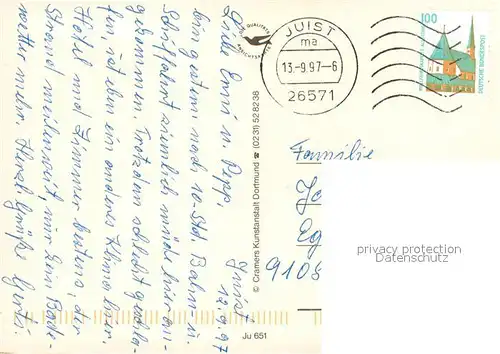 Juist
12.9.97
Liebe Erni u. Sepp,
bin gestern nach 10-Std. Bahn u.
Schiffahrt ziemlich müde hier an-
gekommen. Trotzdem schlecht geschla-
fen, ist eben ein anderes Klima hier.
Hotel und Zimmer bestens, der
Strand meilenweit, nur zum Bade-
wetter mehr. Herzl. Grüße Gerti.
© Cramers Kunstanstalt Dortmund ☎ (0231) 52 82 38
Ju 651
QUALITÄTS
JUIST
ma
13.-9.97-6
26571
100
DEUTSCHE BUNDESPOST
Familie
Eg
9108
privacy protection
Datenschutz